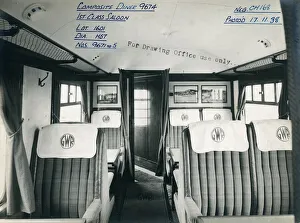 COMPOSITE DINER 9674
1ST CLASS SALOON
LOT 1601
DIA. H57
NOS. 9671 to 5
NEG. CH168
PHOTO'D 17.11.98
For Drawing Office use only.
GWR
GWR
GWR
GWR